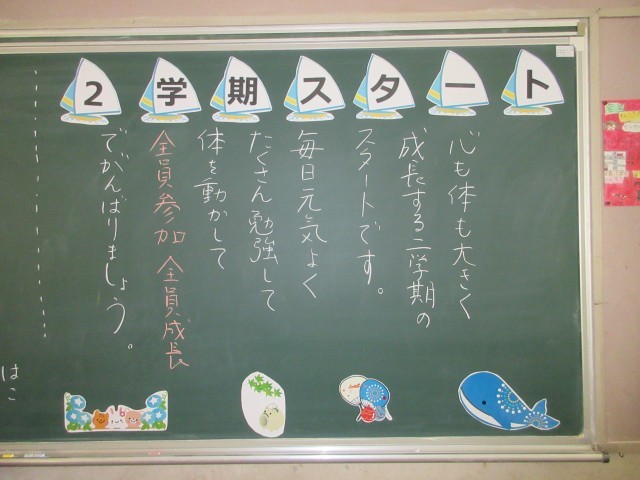 2学期スタート
心も体も大きく
成長する二学期の
スタートです。
毎日元気よく
たくさん勉強して
体を動かして
全員参加 全員成長
でがんばりましょう。
はこ